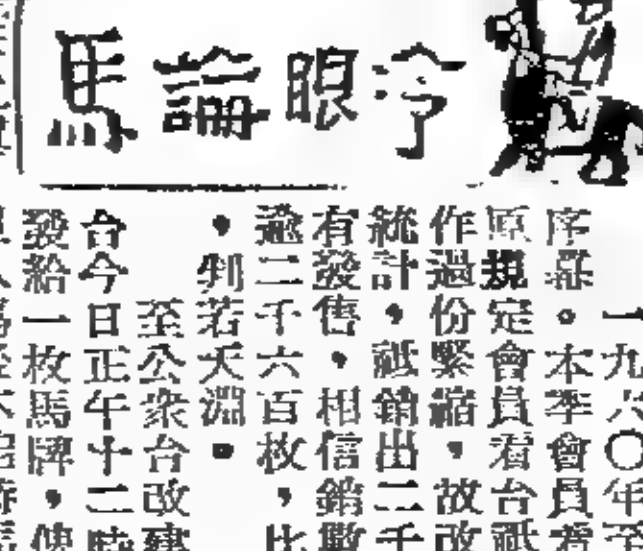 冷眼論馬
一九六〇年至
序幕。本季會員看
原規定會員看台祇
作過份緊縮，故改
統計，祇銷出二千
有發售，相信銷數
逾二千六百枚，比
，判若天淵。
至公衆台改建
台今日正午十二時
發給一枚馬牌，使